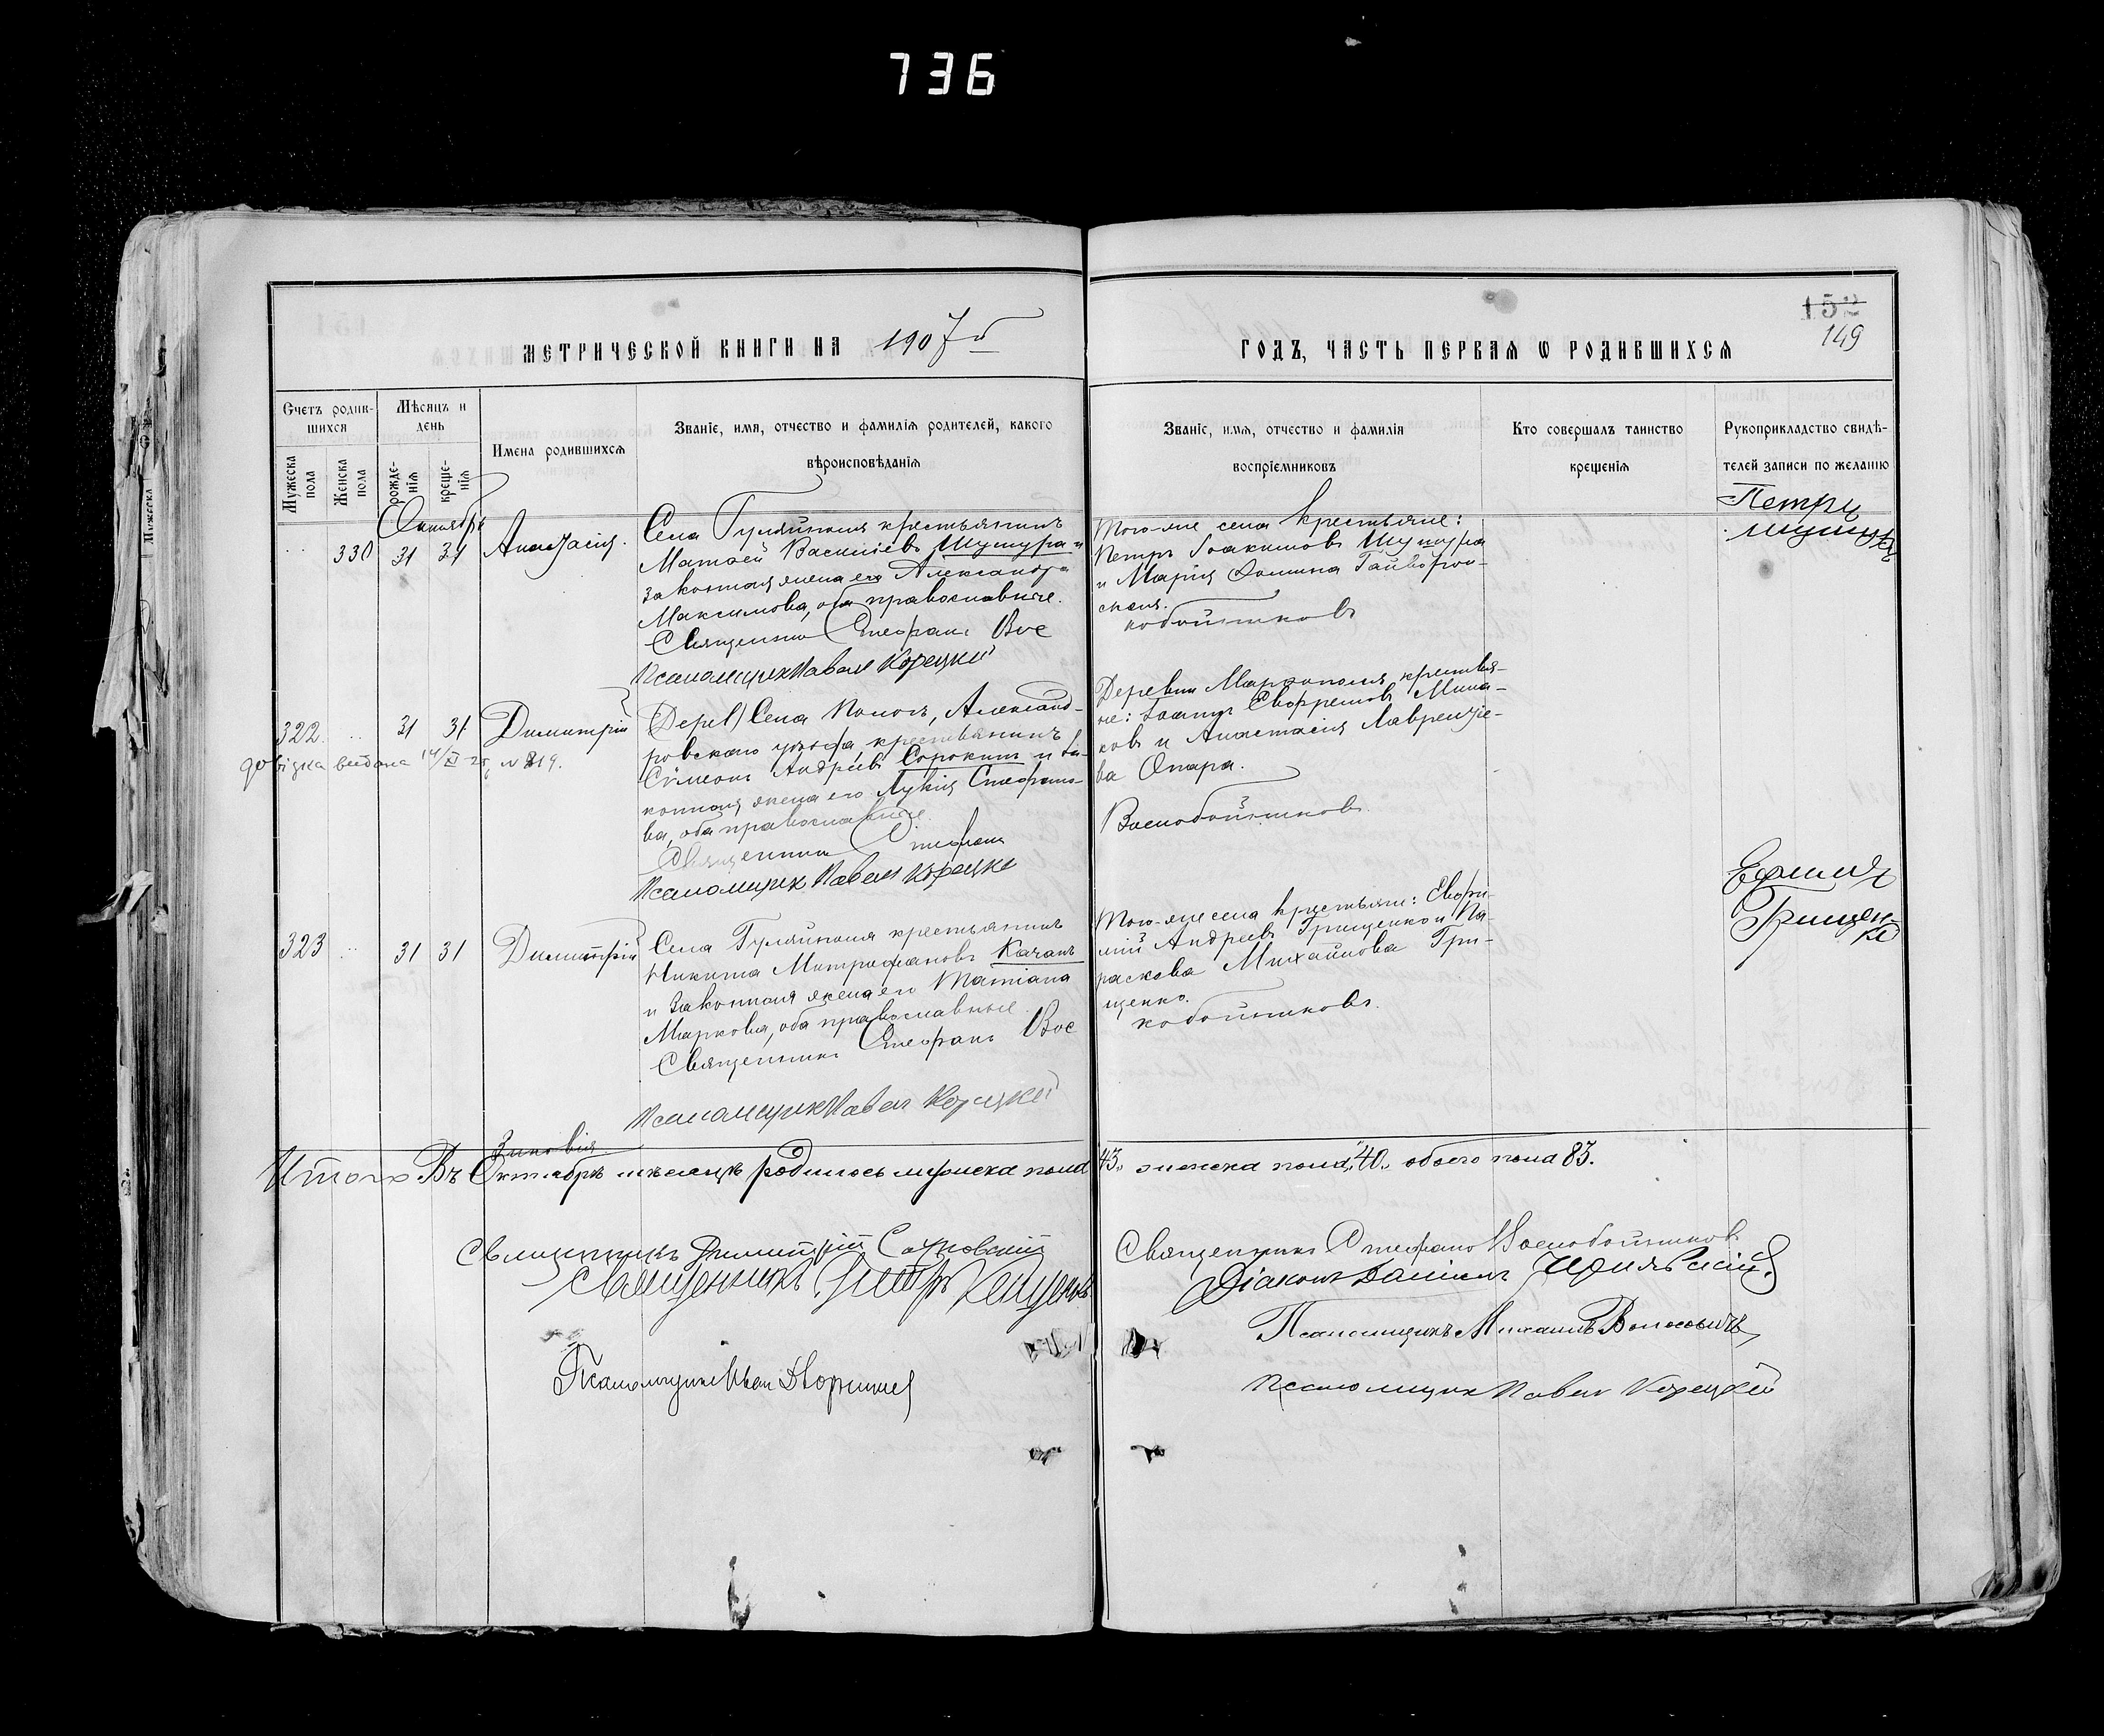 736
152
149
МЕТРИЧЕСКОЙ КНИГИ НА 1907й
ГОДЪ, ЧАСТЬ ПЕРВАЯ Ѡ РОДИВШИХСЯ
Счетъ родив-
шихся
Мужеска пола
Женска пола
Мѣсяцъ и
день
рожде-
нія
креще-
нія
Имена родившихся
Званіе, имя, отчество и фамилія родителей, какого
вѣроисповѣданія
Званіе, имя, отчество и фамилія
воспріемниковъ
Кто совершалъ таинство
крещенія
Рукоприкладство свидѣ-
телей записи по желанію
Октябрь
330 31 31 Анастасія.
Села Гуляйполя крестьянинъ
Матѳей Васильевъ Шутура и
законная жена его Александра
Максимова, оба православные.
Священник Стефанъ Вос
Псаломщик Павел Корецкий
Того-же села крестьяне:
Петръ Іоакимовъ
и Марія Фомина Гайворон-
ская.
кобойниковъ
Петръ
322 31 31 Димитрій
довідка видана 14/XI 25 N 819.
(Дерев) Села Пологъ, Александ-
ровскаго уѣзда крестьянинъ
Сѵмеонъ Андреевъ Сорокинъ и за-
конная жена его Лукія Стефано-
ва, оба православные.
Священник Стефан
Псаломщик Павел Корецкий
Деревни Марѳополя крестья-
не: Іоаннъ Евфремовъ Мина-
ковъ и Анастасія Лаврентье-
ва Опара.
Воскобойниковъ.
323 31 31 Димитрій
Села Гуляйполя крестьянинъ
Никита Митрофановъ Качанъ
и законная жена его Татіана
Маркова, оба православные.
Священникъ Стефанъ Вос
Псаломщик Павел Корецкий
Того-же села крестьяне: Евфи-
мій Андреевъ Грищенко и Па-
раскева Михайлова Гри-
щенко.
кобойниковъ.
Ефим
Грищен-
ко
Зиновія
Итого Въ Октябрѣ мѣсяцѣ родилось мужска пола 43, женска пола 40, обоего пола 83.
Священникъ Димитрій
Священникъ Петръ
Псаломщик Иван
Священникъ Стефанъ Воскобойников
Діаконъ Даніилъ
Псаломщикъ Михаилъ Волосовичъ
Псаломщик Павел Корецкий